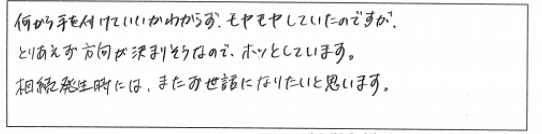 何から手を付けていいかわからず、モヤモヤしていたのですが、
とりあえず方向が決まりそうなので、ホッとしています。
相続発生時には、またお世話になりたいと思います。